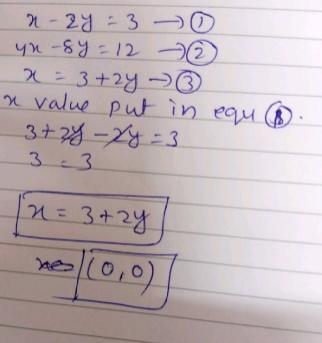 x - 2y = 3 → ①
4x - 8y = 12 → ②
x = 3 + 2y → ③
x value put in equ ①.
3 + 2y - 2y = 3
3 = 3
x = 3 + 2y
(0,0)